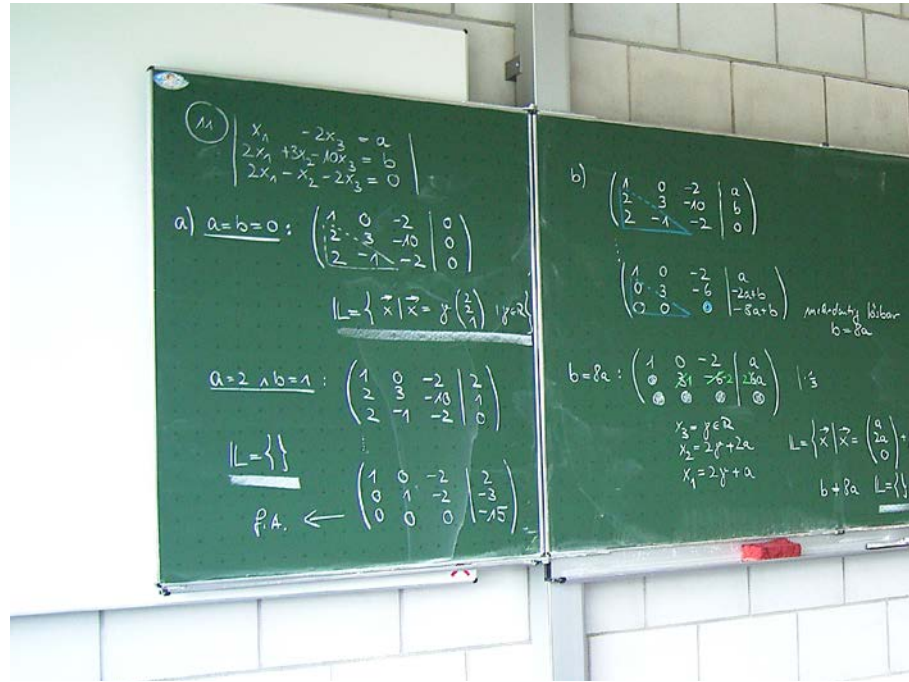 11
x₁ -2x₃ = a
2x₁ +3x₂-10x₃ = b
2x₁ -x₂ -2x₃ = 0
a) a=b=0:
1 0 -2 | 0
2 3 -10 | 0
2 -1 -2 | 0
𝕃={ x⃗ | x⃗ = γ (2 2 1) | γ∈ℝ }
a=2 ∧ b=1:
1 0 -2 | 2
2 3 -10 | 1
2 -1 -2 | 0
𝕃={}
1 0 -2 | 2
0 1 -2 | -3
0 0 0 | -15
f.A. ←
b)
1 0 -2 | a
2 3 -10 | b
2 -1 -2 | 0
1 0 -2 | a
0 3 -6 | -2a+b
0 0 0 | -8a+b
lösbar
b=8a
b=8a:
1 0 -2 | a
| · 1/3
x₃ = γ∈ℝ
x₂ = 2γ+2a
x₁ = 2γ+a
𝕃={ x⃗ | x⃗ = (a 2a 0) +
b≠8a 𝕃={}